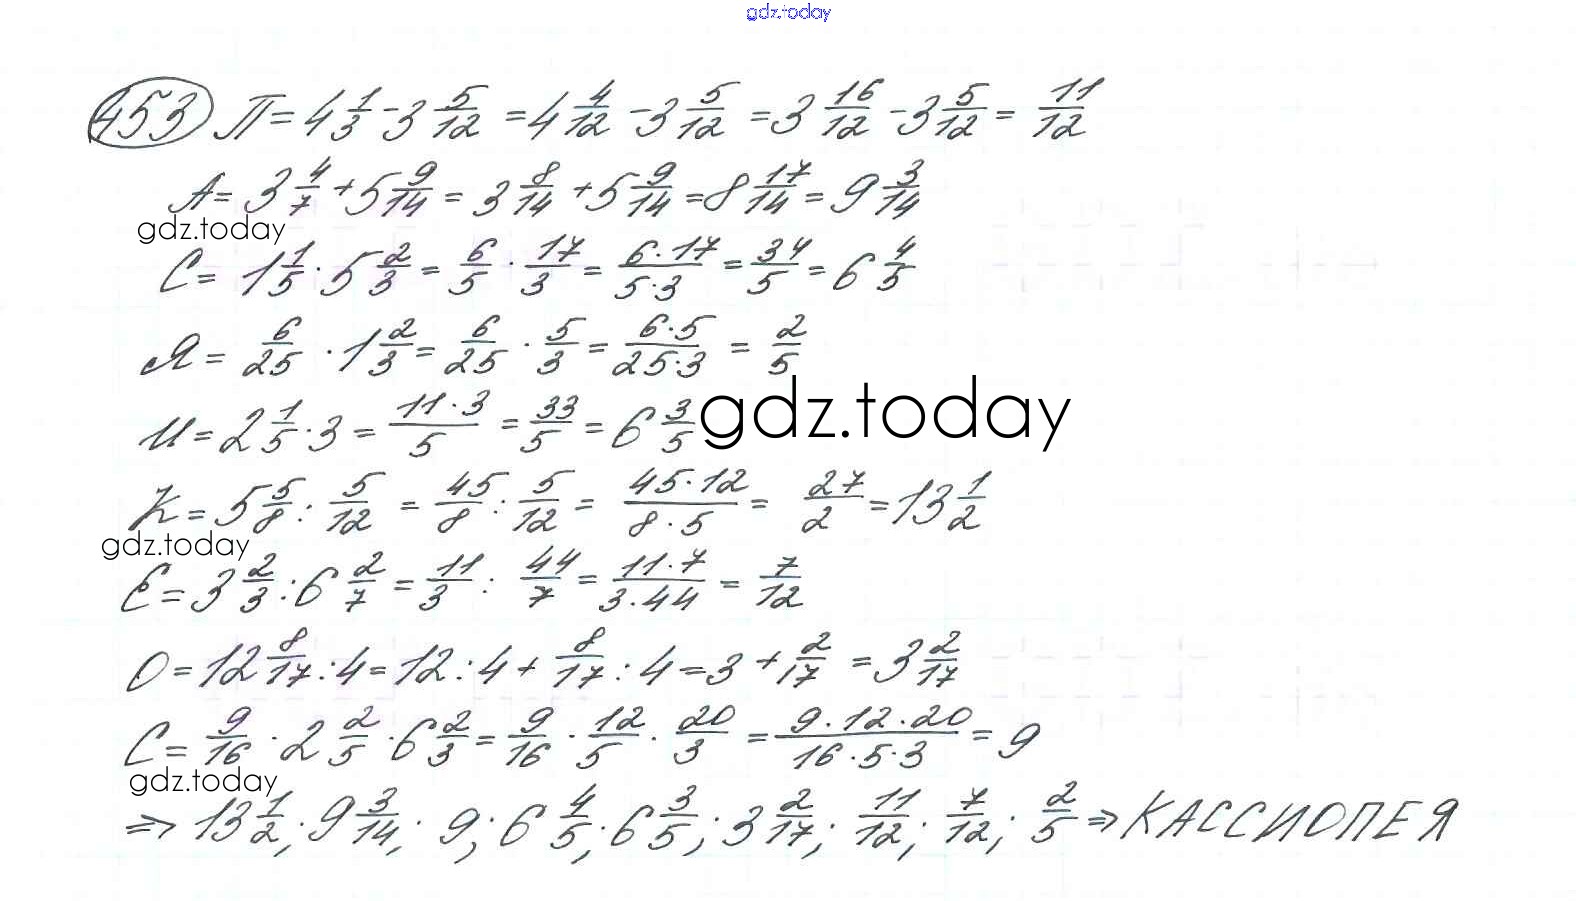 gdz.today
453 П = 4 1/3 - 3 5/12 = 4 4/12 - 3 5/12 = 3 16/12 - 3 5/12 = 11/12
А = 3 4/7 + 5 9/14 = 3 8/14 + 5 9/14 = 8 17/14 = 9 3/14
gdz.today
С = 1 1/5 · 5 2/3 = 6/5 · 17/3 = 6·17/5·3 = 34/5 = 6 4/5
Я = 6/25 · 1 2/3 = 6/25 · 5/3 = 6·5/25·3 = 2/5
И = 2 1/5 · 3 = 11·3/5 = 33/5 = 6 3/5
gdz.today
К = 5 5/8 : 5/12 = 45/8 : 5/12 = 45·12/8·5 = 27/2 = 13 1/2
gdz.today
Е = 3 2/3 : 6 2/7 = 11/3 : 44/7 = 11·7/3·44 = 7/12
О = 12 8/17 : 4 = 12 : 4 + 8/17 : 4 = 3 + 2/17 = 3 2/17
С = 9/16 · 2 2/5 · 6 2/3 = 9/16 · 12/5 · 20/3 = 9·12·20/16·5·3 = 9
gdz.today
⇒ 13 1/2; 9 3/14; 9; 6 4/5; 6 3/5; 3 2/17; 11/12; 7/12; 2/5 ⇒ КАССИОПЕЯ